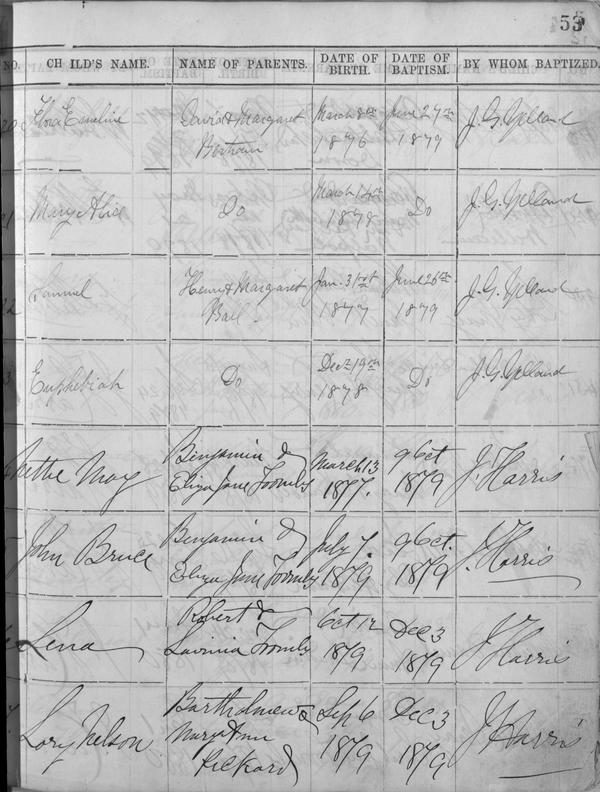 53
NO. CHILD'S NAME. NAME OF PARENTS. DATE OF BIRTH. DATE OF BAPTISM. BY WHOM BAPTIZED.
Flora Emeline David & Margaret March 8th June 27th J. G. Yelland
Bertram 1876 1879
Mary Alice Do March 14th Do J. G. Yelland
1878
Samuel Henry & Margaret Jan. 31st June 26th J. G. Yelland
Ball 1877 1879
Do Dec 19th Do J. G. Yelland
1878
May Benjamin & March 13 9 Oct J. Harris
Eliza Jane 1877. 1879
John Bruce Benjamin & July 7. 9 Oct. J. Harris
Eliza Jane 1879 1879
Lena Robert & Oct 12 Dec 3 J Harris
Lavinia 1879 1879
Lory Nelson Bartholmew & Sep 6 Dec 3 J Harris
Mary Ann 1879 1879
Pickard